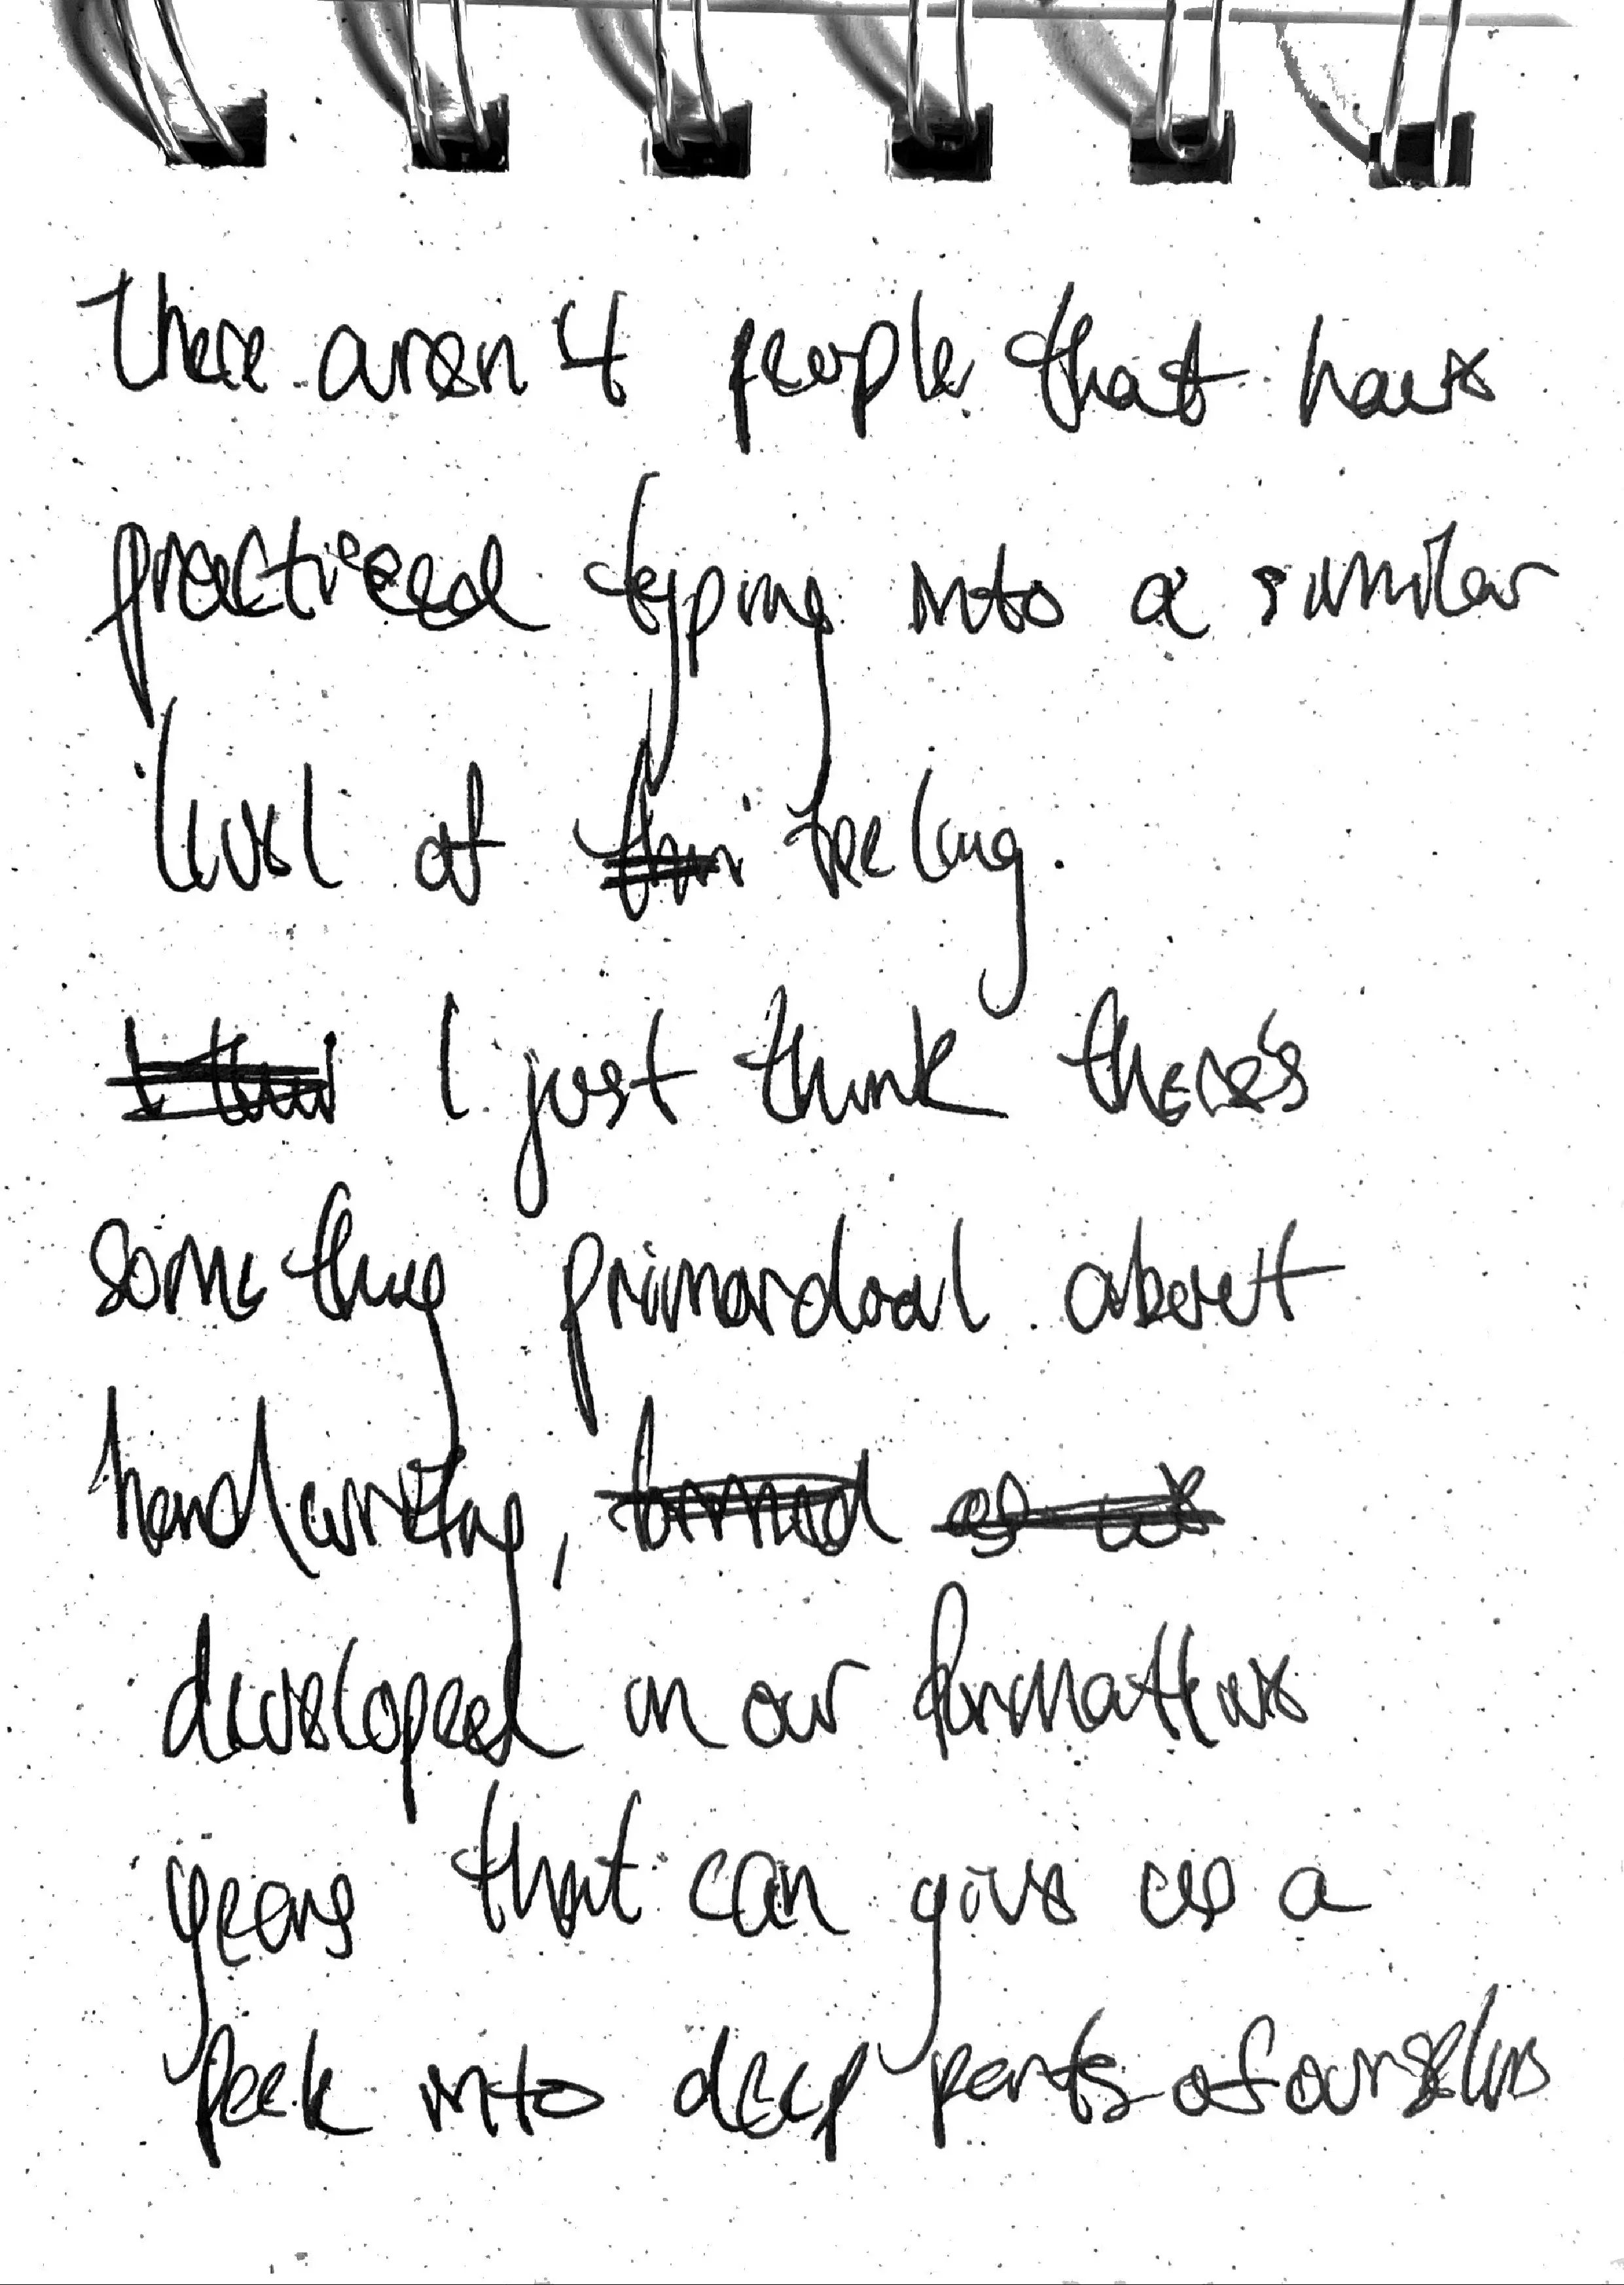 there aren't people that have
practiced typing into a similar
level of feeling.
I just think there's
something primordial about
handwriting,
developed in our formative
years that can give us a
peek into deep parts of ourselves